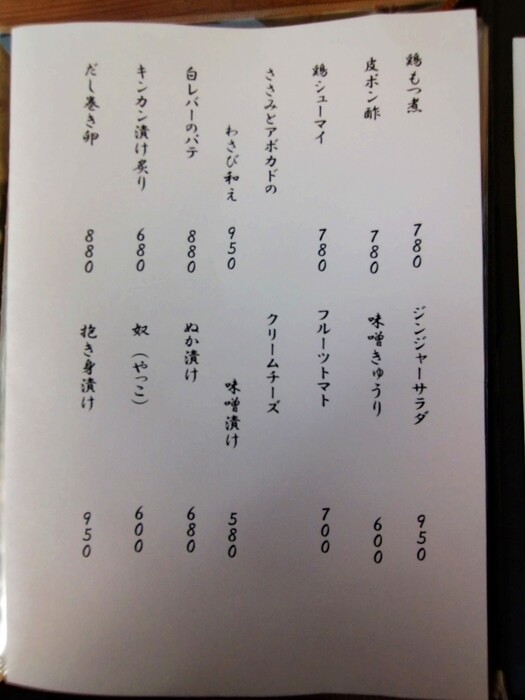 鶏もつ煮 780
皮ポン酢 780
鶏シューマイ 780
ささみとアボカドの
わさび和え 950
白レバーのパテ 880
キンカン漬け炙り 680
だし巻き卵 880
ジンジャーサラダ 950
味噌きゅうり 600
フルーツトマト 700
クリームチーズ
味噌漬け 580
ぬか漬け 680
奴（やっこ） 600
抱き身漬け 950